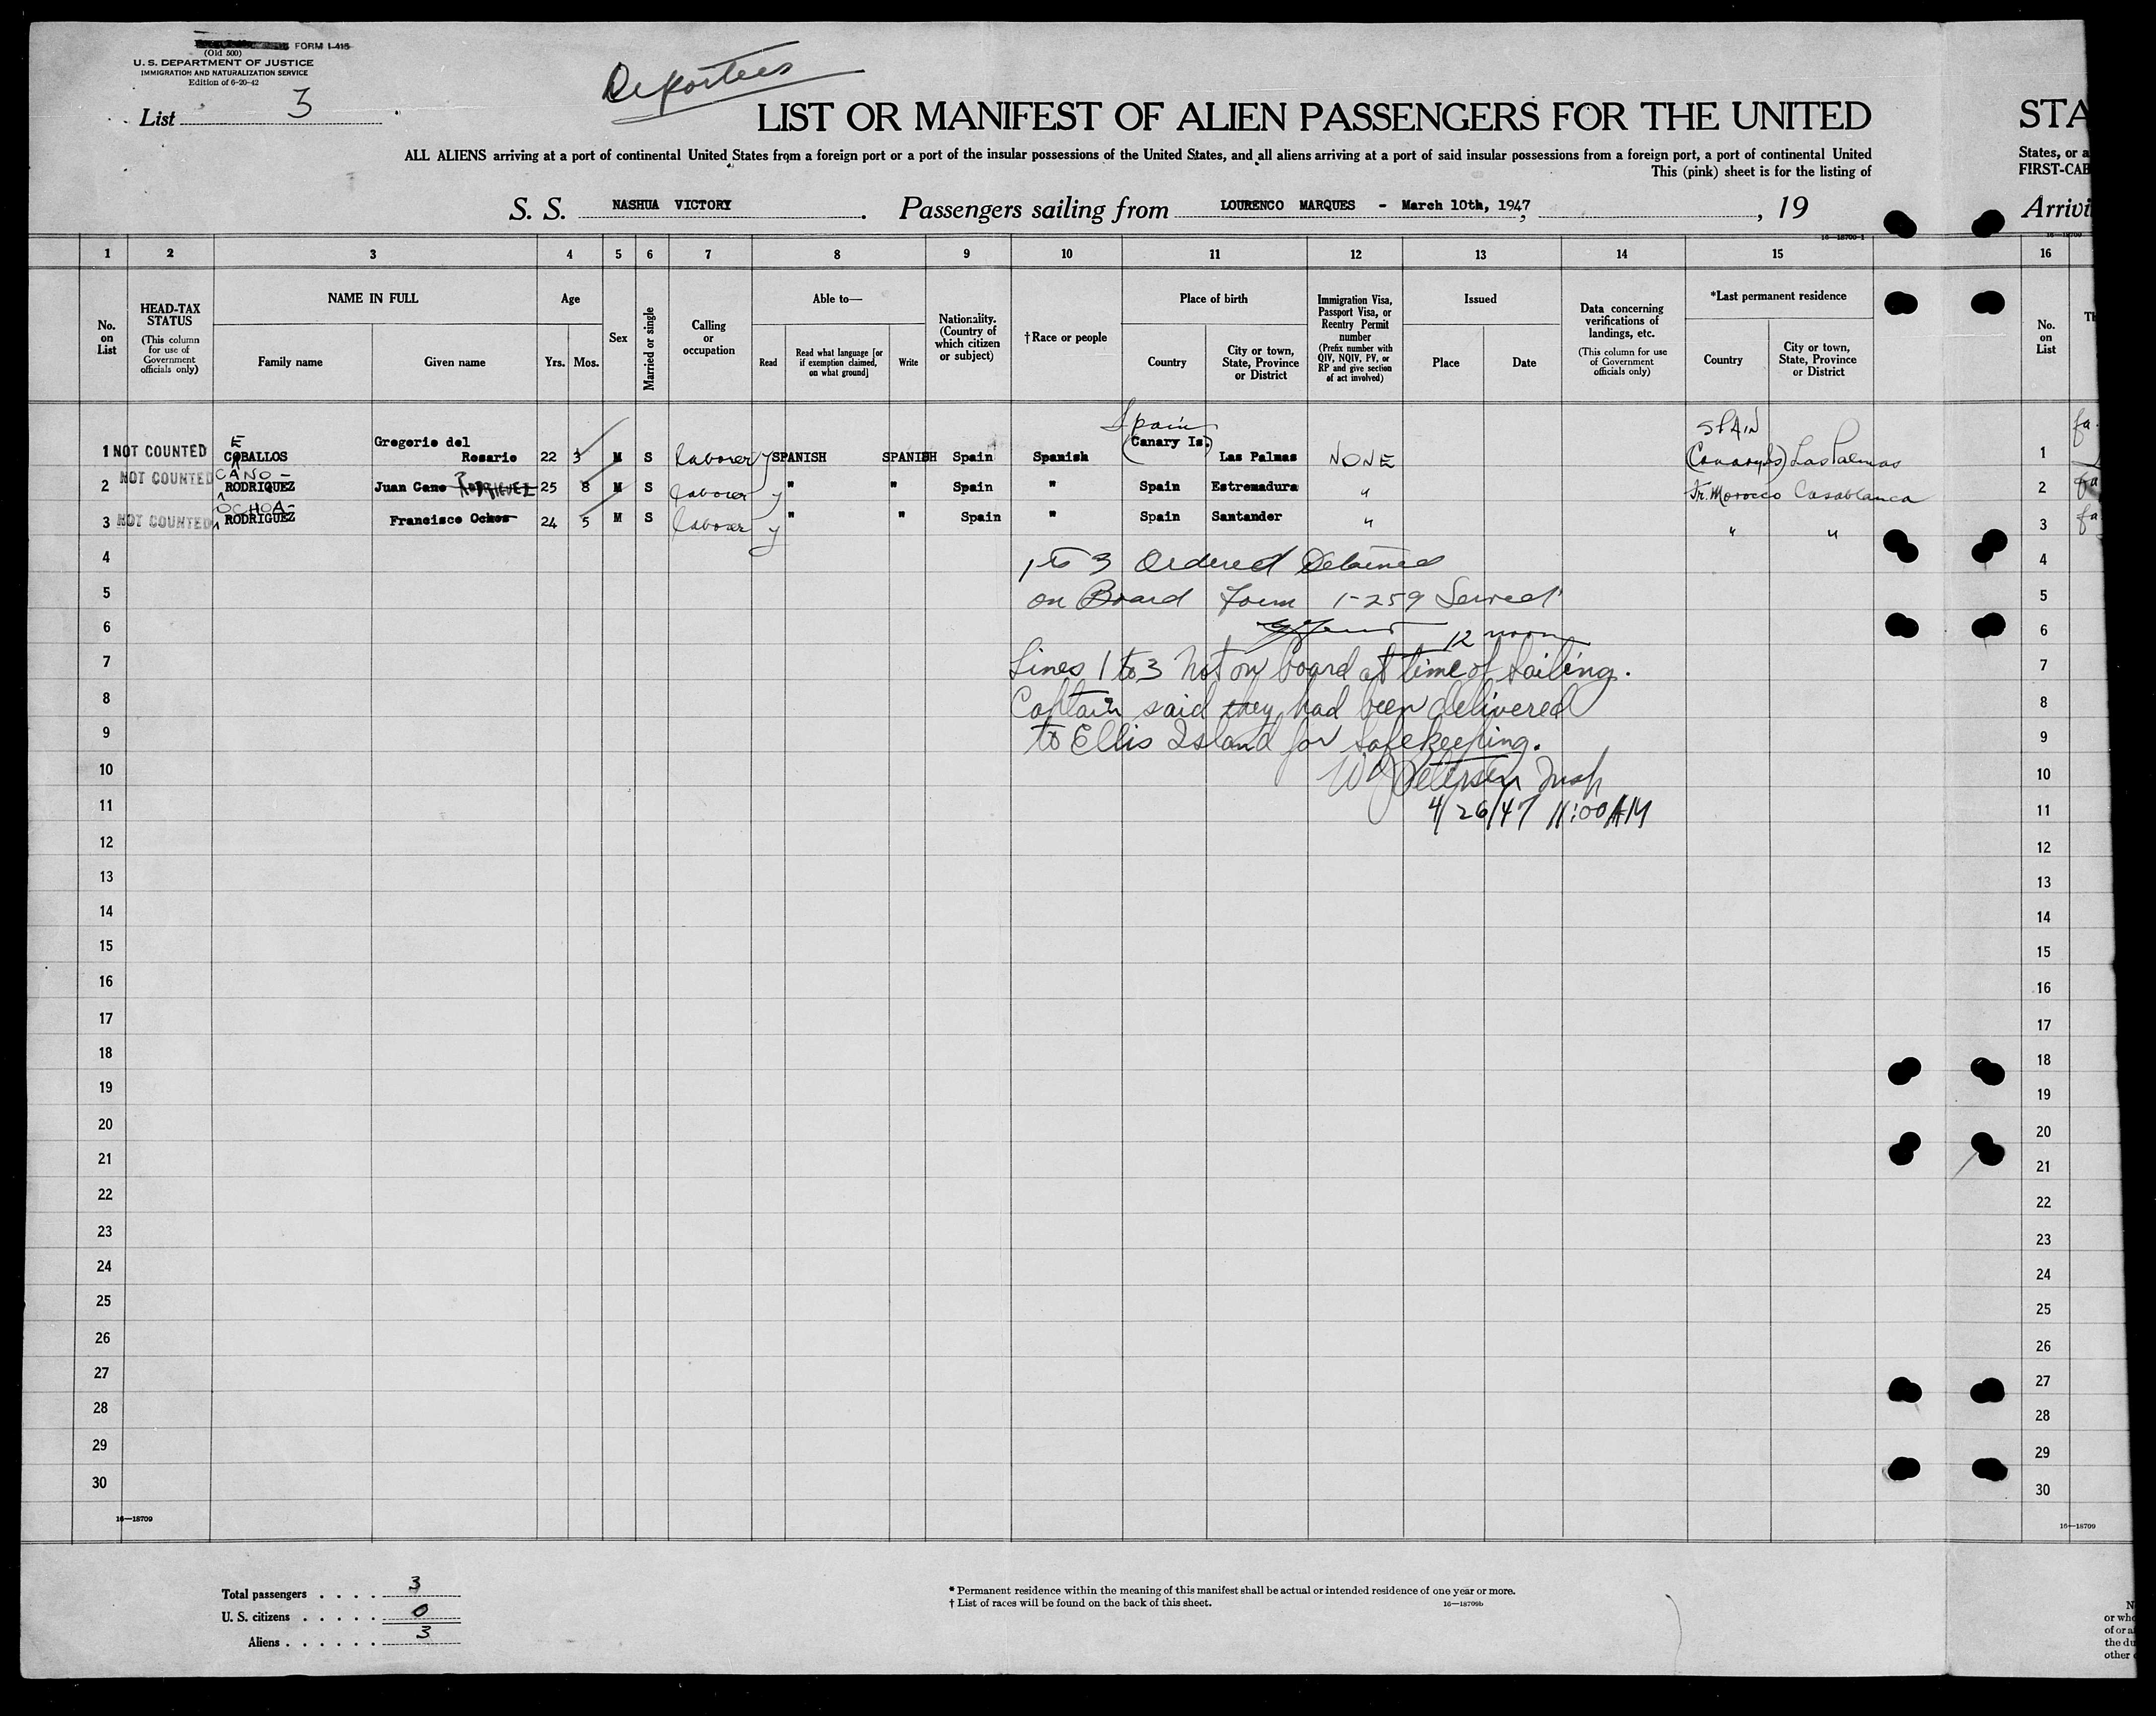 FORM I-415
(Old 500)
U. S. DEPARTMENT OF JUSTICE
IMMIGRATION AND NATURALIZATION SERVICE
Edition of 6-20-42
List 3
Deportees
LIST OR MANIFEST OF ALIEN PASSENGERS FOR THE UNITED
STA
ALL ALIENS arriving at a port of continental United States from a foreign port or a port of the insular possessions of the United States, and all aliens arriving at a port of said insular possessions from a foreign port, a port of continental United
States, or a
This (pink) sheet is for the listing of
FIRST-CAB
S. S. NASHUA VICTORY . Passengers sailing from LOURENCO MARQUES - March 10th, 1947, , 19
Arrivi
16—18709-1
1 2 3 4 5 6 7 8 9 10 11 12 13 14 15 16
No. on List
HEAD-TAX STATUS
(This column for use of Government officials only)
NAME IN FULL
Family name
Given name
Age
Yrs. Mos.
Sex
Married or single
Calling or occupation
Able to—
Read
Read what language [or if exemption claimed, on what ground]
Write
Nationality. (Country of which citizen or subject)
†Race or people
Place of birth
Country
City or town, State, Province or District
Immigration Visa, Passport Visa, or Reentry Permit number
(Prefix number with QIV, NQIV, PV, or RP and give section of act involved)
Issued
Place
Date
Data concerning verifications of landings, etc.
(This column for use of Government officials only)
*Last permanent residence
Country
City or town, State, Province or District
No. on List
Spain
SPAIN
E
Gregorio del
(Canary Is.)
1 NOT COUNTED COBALLOS Rosario 22 3 M S laborer y SPANISH SPANISH Spain Spanish Las Palmas NONE (Canary Is) Las Palmas 1
CANO -
2 NOT COUNTED RODRIQUEZ Juan Cano RODRIGUEZ 25 8 M S laborer y " " Spain " Spain Estremadura " Fr. Morocco Casablanca 2
OCHOA-
3 NOT COUNTED RODRIGUEZ Francisco Ochos 24 5 M S laborer y " " Spain " Spain Santander " " " 3
4 1 to 3 Ordered Detained 4
5 on Board Form 1-259 Served 5
6 12 noon 6
7 Lines 1 to 3 Not on board at time of sailing. 7
8 Captain said they had been delivered 8
9 to Ellis Island for safekeeping. 9
10 WJ Petersen Insp 10
11 4/26/47 11:00 AM 11
12 12
13 13
14 14
15 15
16 16
17 17
18 18
19 19
20 20
21 21
22 22
23 23
24 24
25 25
26 26
27 27
28 28
29 29
30 30
16—18709
16—18709
Total passengers . . . . 3
U. S. citizens . . . . . 0
Aliens . . . . . . 3
* Permanent residence within the meaning of this manifest shall be actual or intended residence of one year or more.
† List of races will be found on the back of this sheet. 16—18709b
or who
of or a
the du
other